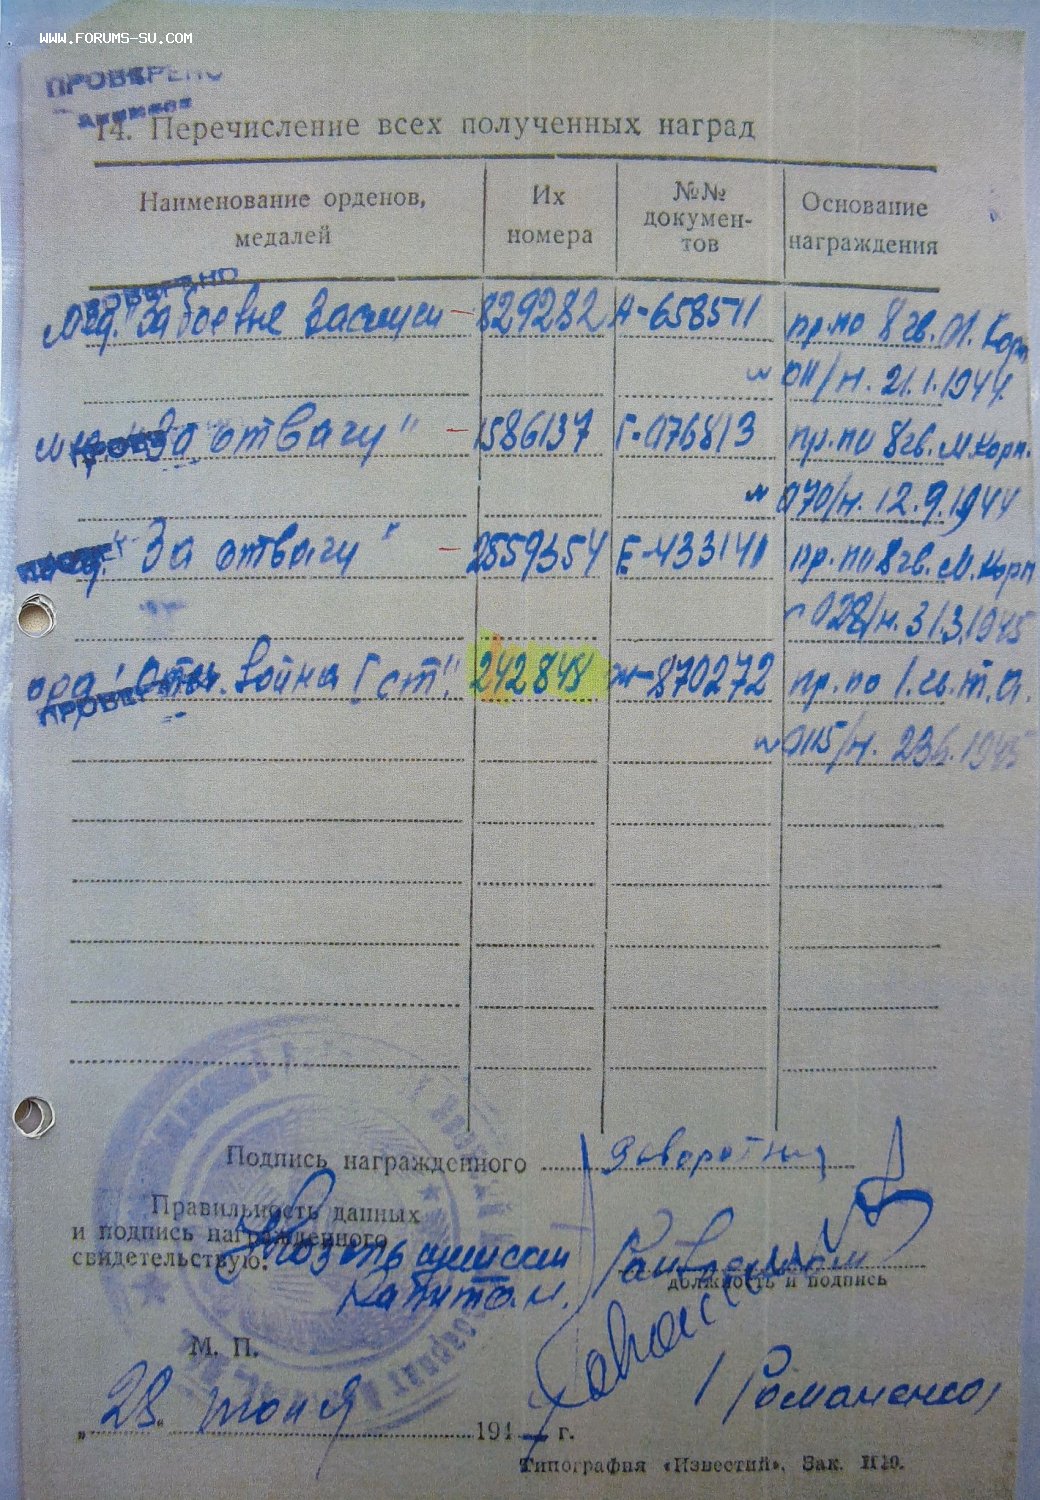 WWW.FORUMS-SU.COM
ПРОВЕРЕНО
14. Перечисление всех полученных наград
Наименование орденов, медалей
Их номера
№№ докумен-тов
Основание награждения
ПРОВЕРЕНО
Мед. "За боевые заслуги - 829282 А-658511 пр. по 8 гв. М. Корп
№ 011/н. 21.1.1944.
ПРОВЕ
"За отвагу" - 1586137 Г-076813 пр. по 8 гв. М. Корп.
№ 070/н. 12.9.1944
"За отвагу" - 2559354 Е-433140 пр. по 8 гв. М. Корп
028/н. 31.3.1945
орд. Отеч. война I ст". 242848 Ж-870272 пр. по 1. гв. т. а.
ПРОВЕР
№ 0115/н. 23.6.1945
Подпись награжденного
Правильность данных
и подпись награжденного
свидетельствую:
Капитан.
должность и подпись
М. П.
Романенко
„28“ июня 1947 г.
Типография «Известий». Зак.